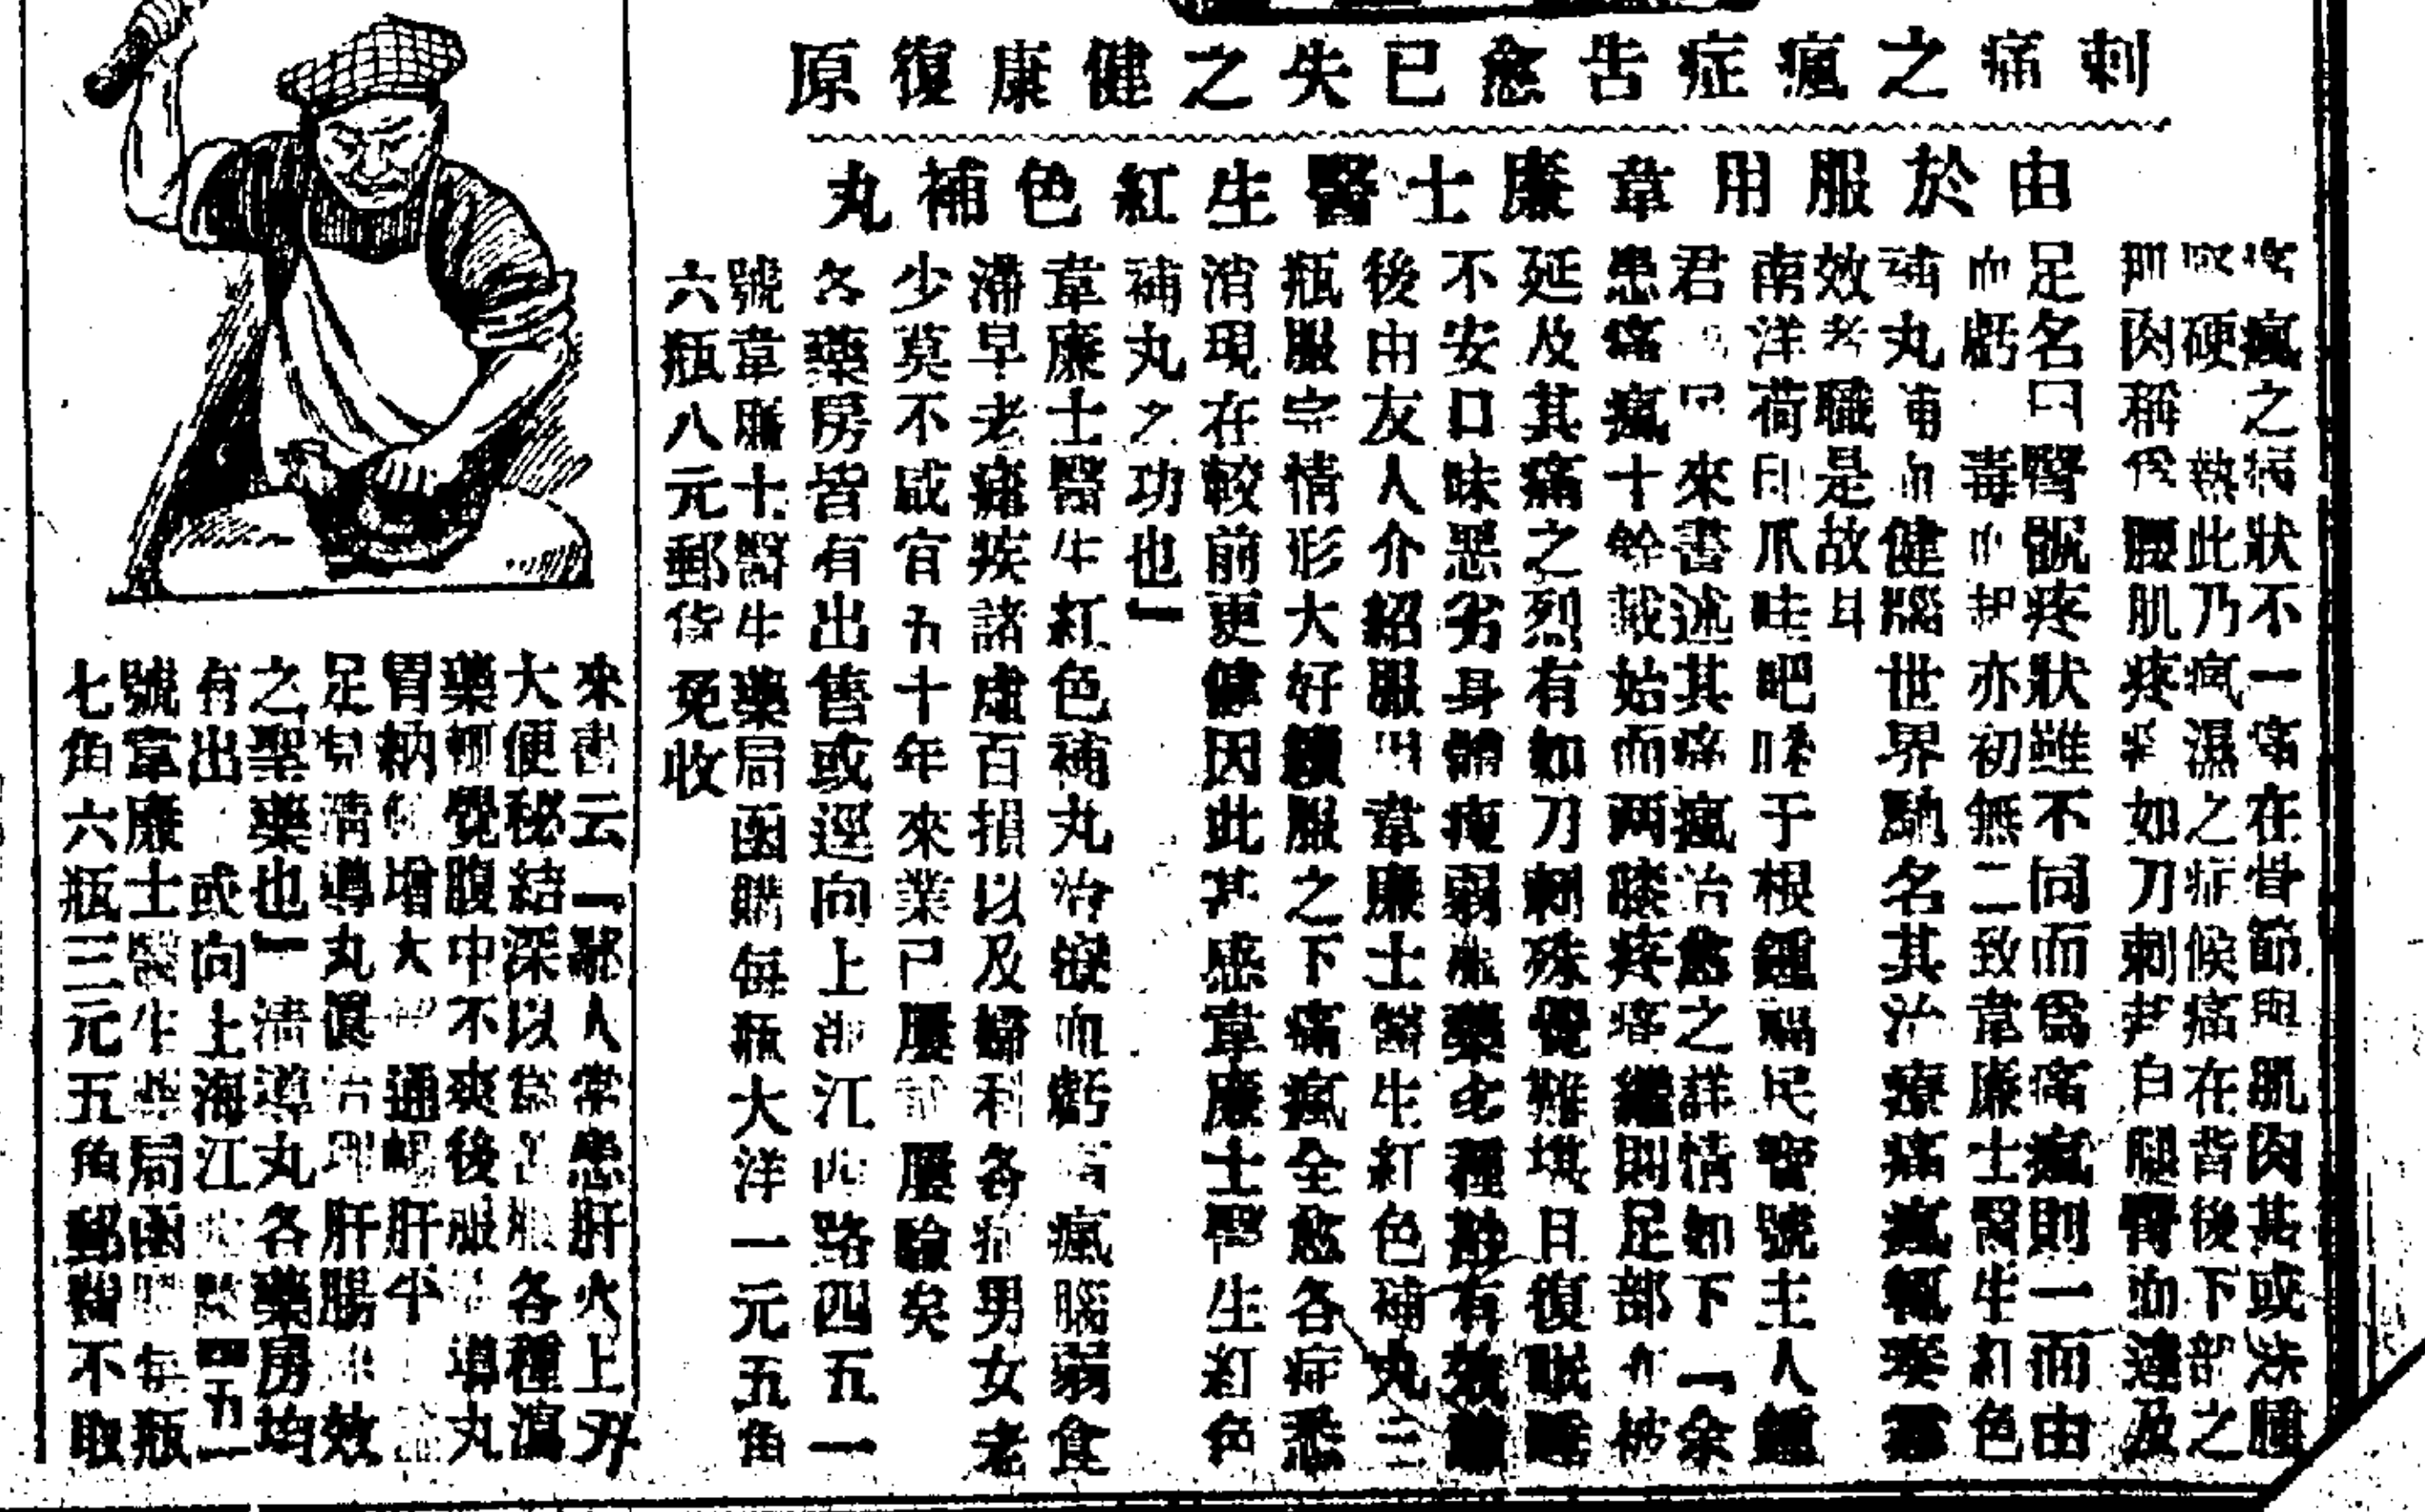 刺痛之瘋症告愈已失之健康復原
由於服用韋廉士醫生紅色補丸
瘋之病狀不一痛在骨節與肌肉甚或浮腫
堅硬熱此乃瘋濕之症候痛在背後下部之
肌肉稱為腰肌疼痛如刀刺從臼腿臀而達及
足名曰腎骶疼狀雖不同而為痛瘋則一而由
血虧毒而起亦初無二致韋廉士醫生紅色
補丸補血健腦世界馳名其治療痛瘋輒奏靈
效者職是故耳
南洋荷印爪哇吧城于根鍾福民寶號主人鍾
君來書述其痛瘋治愈之詳情如下「余
患痛瘋十餘載始而两膝疼痛繼則足部
延及其痛之烈有如刀刺殊覺難堪日復眠睡
不安口味惡劣身體瘦弱藥多種有效
後由友人介紹服用韋廉士醫生紅色補丸三
瓶服完情形大好續服之下痛瘋全愈各症悉
消現在較前更健因此甚感韋廉士醫生紅色
補丸之功也」
韋廉士醫生紅色補丸治療血虧瘋腦弱食
滯早老瘧疾諸虛百損以及婦科各病男女老
少莫不咸宜五十年來業已屢試屢驗矣
各藥房皆有出售或逕向上海江西路四五一
號韋廉士醫生藥局函購每瓶大洋一元五角
六瓶八元郵費免收
來書云「鄙人常患肝火上升
大便秘結深以為苦服各種瀉
藥輒覺腹中不爽後服清導丸
胃納增大通暢肝平
足見清導丸眞治肝腸效
之聖藥也」清導丸各藥房均
有出或向上海江四五一
號韋廉士醫生藥局函購每瓶
七角六瓶三元五角郵費不取